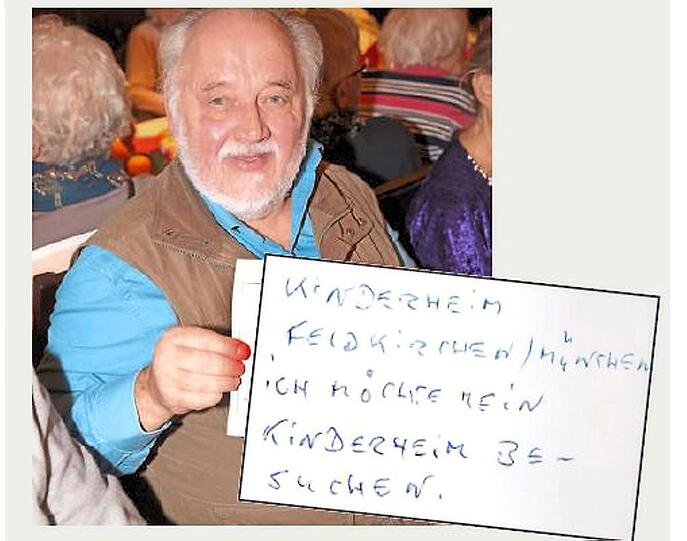 KINDERHEIM
FELDKIRCHEN/MÜNCHEN
ICH MÖCHTE MEIN
KINDERHEIM BE-
SUCHEN.